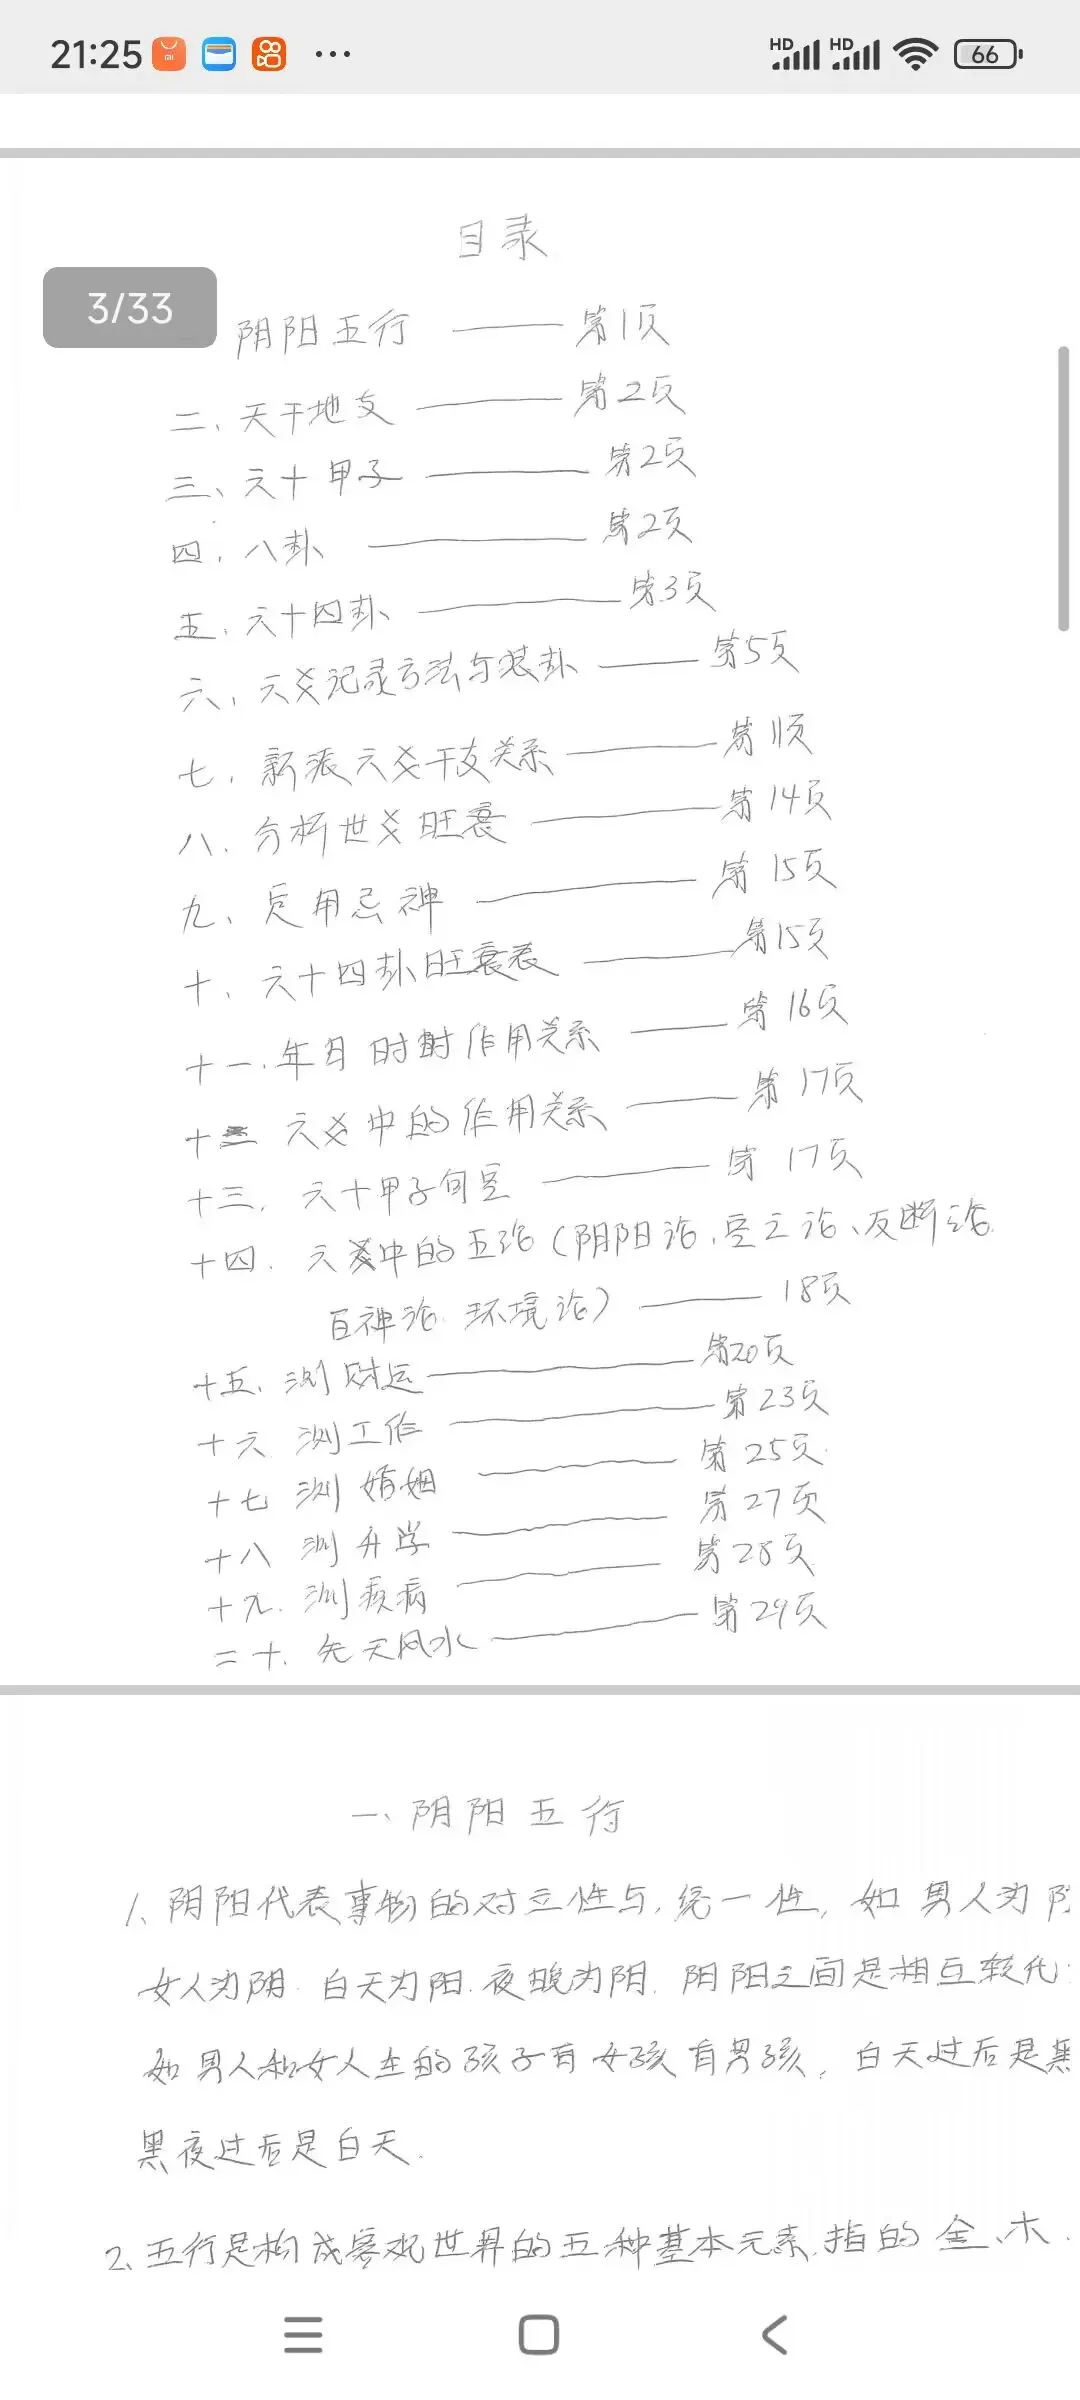 21:25
HD HD 66
目录
3/33
阴阳五行 —— 第1页
二、天干地支 —— 第2页
三、六十甲子 —— 第2页
四、八卦 —— 第2页
五、六十四卦 —— 第3页
六、六爻记录方法与装卦 —— 第5页
七、新派六爻干支关系 —— 第11页
八、分析世爻旺衰 —— 第14页
九、定用忌神 —— 第15页
十、六十四卦旺衰表 —— 第15页
十一、年月日时 作用关系 —— 第16页
十二 六爻中的作用关系 —— 第17页
十三、六十甲子旬空 —— 第17页
十四、六爻中的五论(阴阳论、空亡论、反断论
百神论、环境论) —— 18页
十五、测财运 —— 第20页
十六 测工作 —— 第23页
十七 测婚姻 —— 第25页
十八 测升学 —— 第27页
十九、测疾病 —— 第28页
二十、先天风水 —— 第29页
一、阴阳五行
1、阴阳代表事物的对立性与统一性, 如男人为
女人为阴. 白天为阳. 夜晚为阴. 阴阳之间是相互转化
如男人和女人生的孩子有女孩有男孩, 白天过后是黑
黑夜过后是白天.
2、五行是构成客观世界的五种基本元素, 指的金、木、